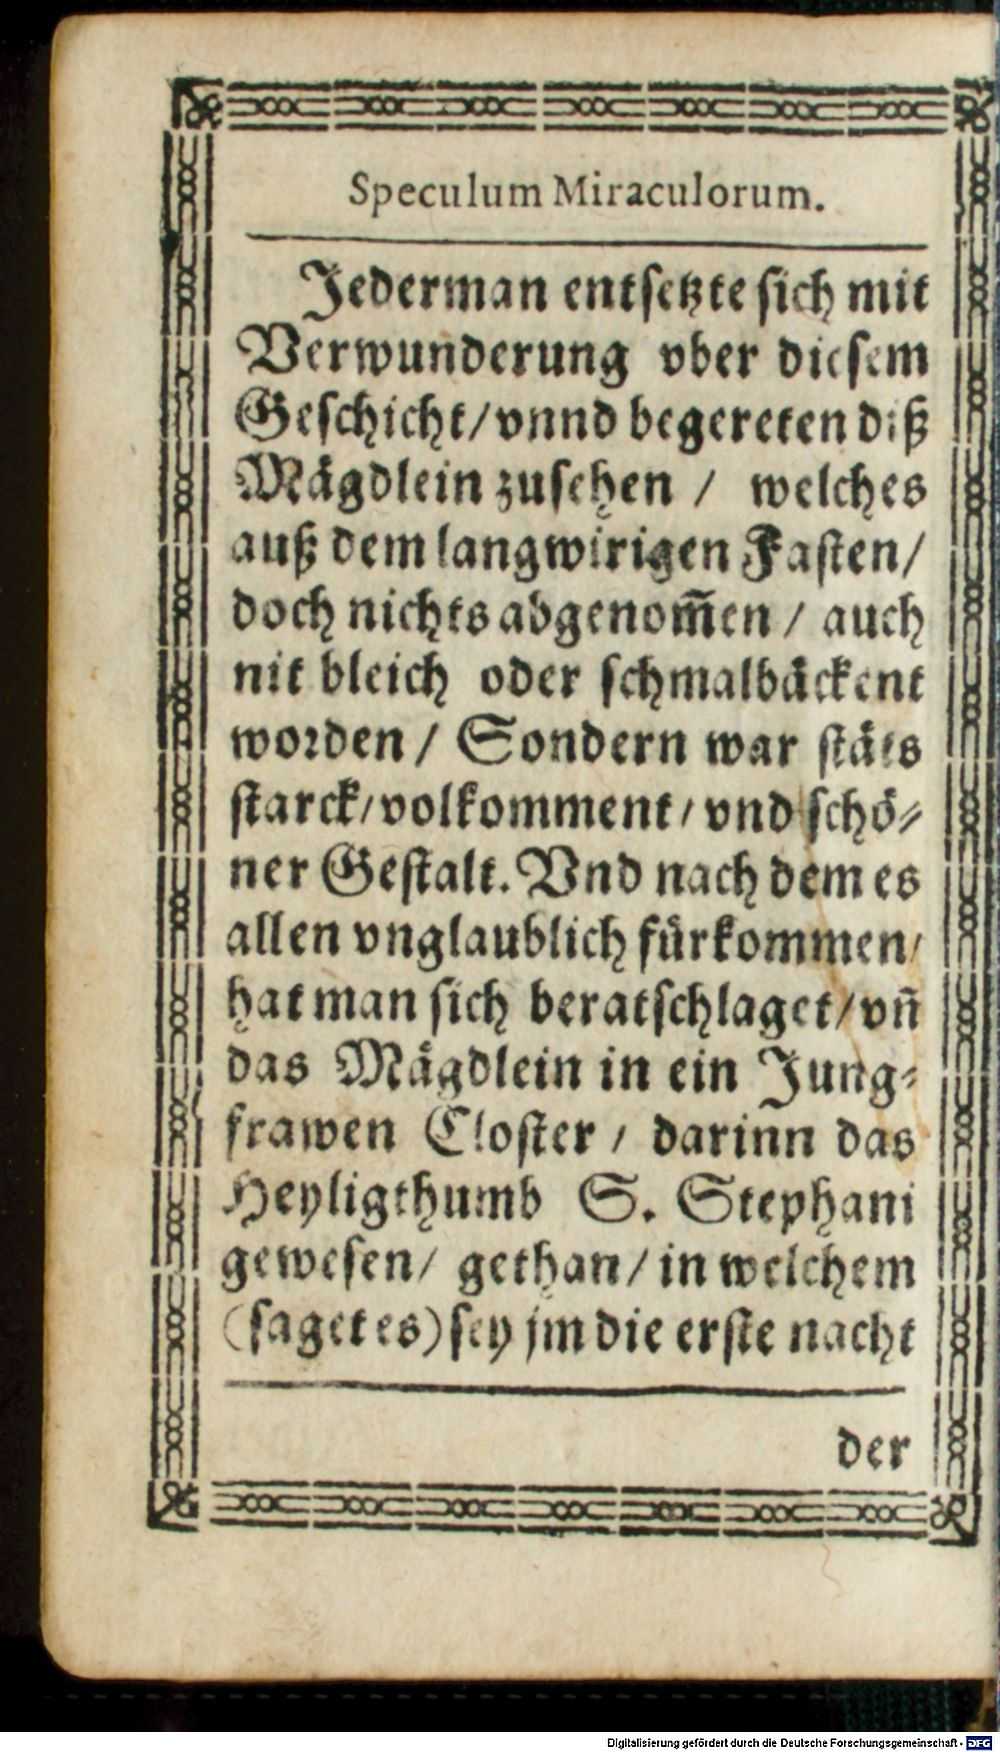 Speculum Miraculorum.
Jederman entsetzte sich mit
Verwunderung vber diesem
Geschicht/vnnd begereten diß
Mägdlein zusehen / welches
auß dem langwirigen Fasten/
doch nichts abgenom̄en / auch
nit bleich oder schmalbäckent
worden / Sondern war stäts
starck/volkomment/vnd schö-
ner Gestalt. Vnd nach dem es
allen vnglaublich fürkommen/
hat man sich beratschlaget/vn̄
das Mägdlein in ein Jung-
frawen Closter / darinn das
Heyligthumb S. Stephani
gewesen/ gethan/ in welchem
(saget es) sey jm die erste nacht
der
Digitalisierung gefördert durch die Deutsche Forschungsgemeinschaft - DFG